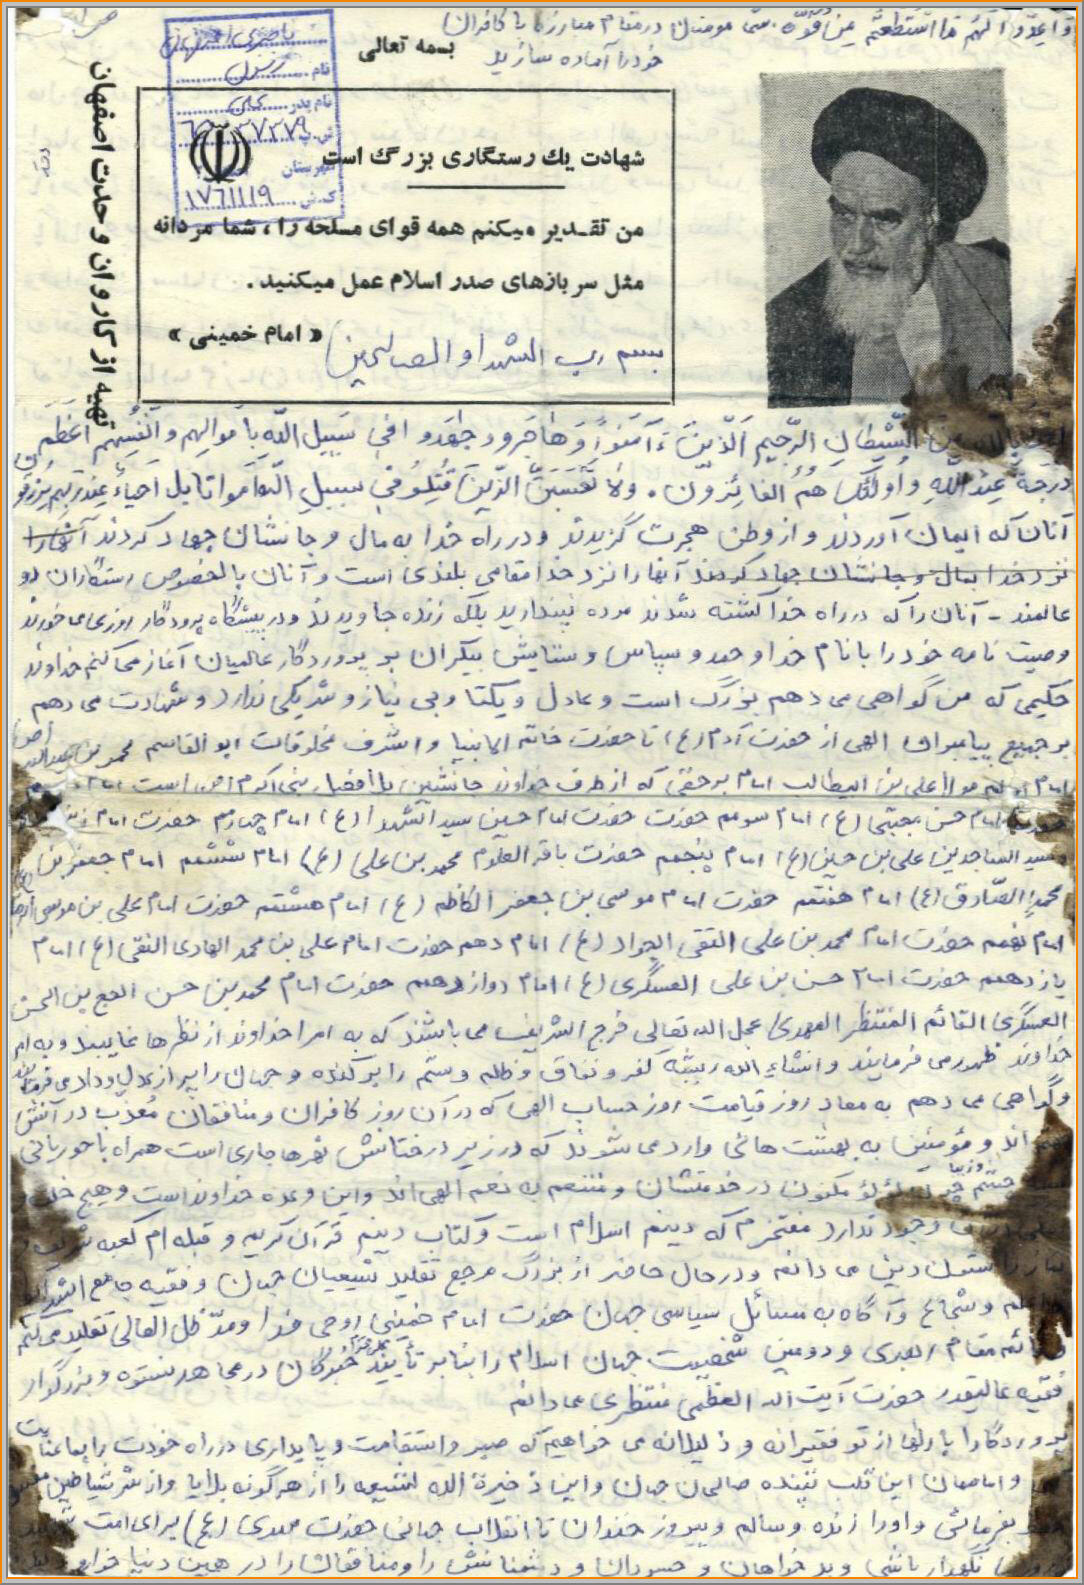 و اعدوا لهم ما استطعتم من قوة. شما مومنان در مقام مبارزه با کافران
خود را آماده سازید
بسمه تعالی
نام رسول
نام پدر
ش.پ
شهرستان
ک.ش ۱۷۶۱۱۱۹
تهیه از کاروان وحدت اصفهان
شهادت يك رستگاری بزرگ است
من تقدیر میکنم همه قوای مسلحه را، شما مردانه
مثل سربازهای صدر اسلام عمل میکنید.
« امام خمینی »
بسم رب الشهداء و الصالحین
الشیطان الرجیم الذین ءآمنوا و هاجروا و جهدوا فی سبیل الله باموالهم و انفسهم اعظم
درجة عند الله و اولئک هم الفائزون. ولا تحسبن الذین قتلو فی سبیل الله امواتا بل احیاء عند ربهم یرزقون
آنان که ایمان آوردند و از وطن هجرت گزیدند و در راه خدا به مال و جانشان جهاد کردند آنها را
نزد خدا بمال و جانشان جهاد کردند آنها را نزد خدا مقامی بلندی است و آنان بالخصوص رستگاران دو
عالمند - آنان را که در راه خدا کشته شدند مرده نپندارید بلکه زنده جاویدند و در پیشگاه پروردگار روزی می خورند
وصیت نامه خود را با نام خدا و حمد و سپاس و ستایش بیکران بر پروردگار عالمیان آغاز می کنم خداوند
حکیمی که من گواهی می دهم بزرگ است و عادل و یکتا و بی نیاز و شریکی ندارد و شهادت می دهم
بر جمیع پیامبران الهی از حضرت آدم (ع) تا حضرت خاتم الانبیا و اشرف مخلوقات ابوالقاسم محمد بن عبدالله (ص)
امام اولم مولا علی بن ابیطالب امام بر حقی که از طرف خداوند جانشین بلافصل نبی اکرم (ص) است امام
حضرت امام حسن مجتبی (ع) امام سومم حضرت حضرت امام حسین سید الشهدا (ع) امام چهارم حضرت امام زین
سید الساجدین علی بن حسین (ع) امام پنجمم حضرت باقر العلوم محمد بن علی (ع) امام ششمم امام جعفر بن
محمد الصادق (ع) امام هفتمم حضرت امام موسی بن جعفر الکاظم (ع) امام هشتمم حضرت امام علی بن موسی الرضا (ع)
امام نهمم حضرت امام محمد بن علی التقی الجواد (ع) امام دهم حضرت امام علی بن محمد الهادی النقی (ع) امام
یازدهم حضرت امام حسن بن علی العسگری (ع) امام دوازدهم حضرت امام محمد بن حسن الحجع بن الحسن
العسگری القائم المنتظر المهدی عجل الله تعالی فرج الشریف می باشند که به امر خداوند از نظرها غایبند و به امر
خداوند ظهور می فرمایند و انشاء الله ریشه کفر و نفاق و ظلم و ستم را بر کنده و جهان را پر از عدل و داد می فرمایند
و گواهی می دهم به معاد روز قیامت روز حساب الهی که در آن روز کافران و منافقان معذب در آتش
اند و مؤمنین به بهشت هائی وارد می شوند که در زیر درختانش نهرها جاری است همراه با حوریانی
چشم چون لؤلؤ مکنون در خدمتشان و متنعم به نعم الهی اند و این وعده خداوند است و هیچ
وجود ندارد مفتخرم که دینم اسلام است و کتاب دینم قرآن کریم و قبله ام کعبه شریف و
نماز را ستون دین می دانم و در حال حاضر از بزرگ مرجع تقلید شیعیان جهان و فقیه جامع الشرایط
و شجاع و آگاه به مسائل سیاسی جهان حضرت امام خمینی روحی فدا و مد ظل العالی تقلید می کنم
قائم مقام رهبری و دومین شخصیت جهان اسلام را بنا بر تأیید خبرگان در مجاهد نستوه و بزرگوار
فقیه عالیقدر حضرت آیت الله العظمی منتظری می دانم
پروردگارا بارالها از تو فقیرانه و ذلیلانه می خواهیم که صبر و استقامت و پایداری در راه خودت را بما عنایت
و امامان این قلب تپنده صالحان جهان و این ذخیرة الله الشیعه را از هر گونه بلایا و از شر شیاطین
بفرمائی و او را زنده و سالم و پیروز خندان تا انقلاب جهانی حضرت مهدی (عج) برای امت
نگهدار باشی و بد خواهان و حسودان و دشمنانش را و منافقان را در همین دنیا